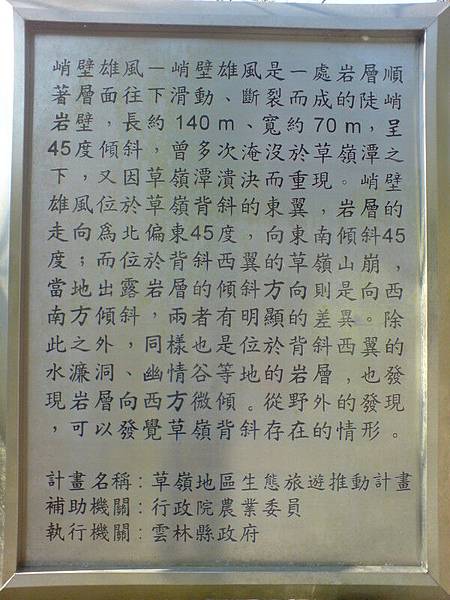 峭壁雄風－峭壁雄風是一處岩層順
著層面往下滑動、斷裂而成的陡峭
岩壁，長約 140 m、寬約 70 m，呈
45度傾斜，曾多次淹沒於草嶺潭之
下，又因草嶺潭潰決而重現。峭壁
雄風位於草嶺背斜的東翼，岩層的
走向為北偏東45度，向東南傾斜45
度；而位於背斜西翼的草嶺山崩，
當地出露岩層的傾斜方向則是向西
南方傾斜，兩者有明顯的差異。除
此之外，同樣也是位於背斜西翼的
水濂洞、幽情谷等地的岩層，也發
現岩層向西方微傾。從野外的發現
，可以發覺草嶺背斜存在的情形。
計畫名稱：草嶺地區生態旅遊推動計畫
補助機關：行政院農業委員
執行機關：雲林縣政府